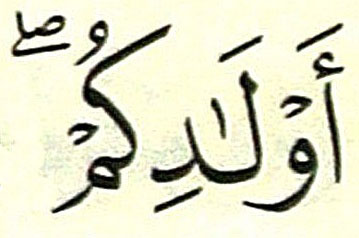 أَوْلَٰدِكُمْ ۖ